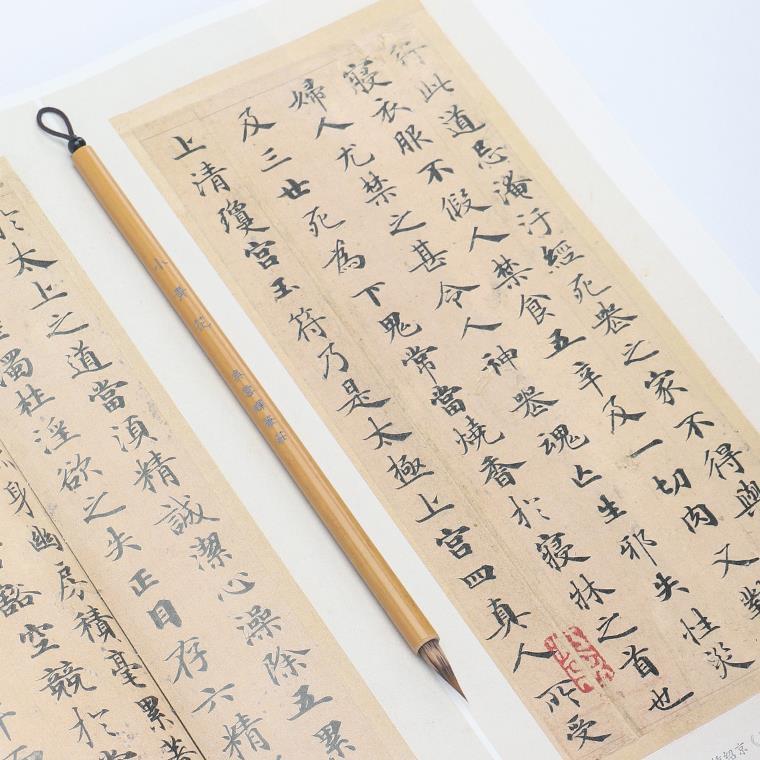 行此道忌淹汙經死喪之家不得與
寢衣服不假人禁食五辛及一切肉又對
婦人尤禁之甚令人神喪魂亡生邪失性災
及三世死為下鬼常當燒香於寢牀之首也
上清瓊宮玉符乃是太極上宮四真人所受
於太上之道當須精誠潔心澡除五累
濁杜淫欲之失正目存六精
身幽房積毫累著
豁空競於常
紹京